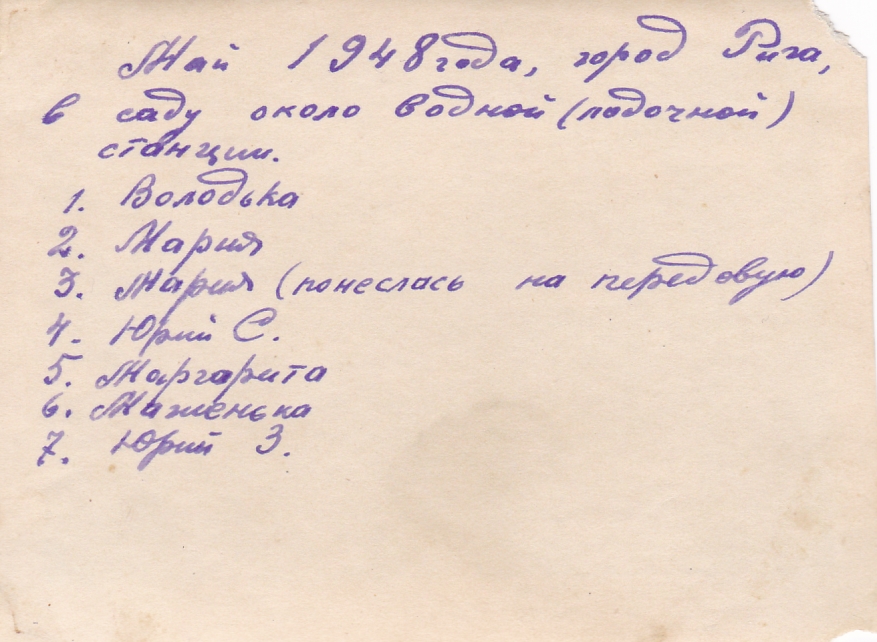 Май 1948 года, город Рига,
в саду около водной (лодочной)
станции.
1. Володька
2. Мария
3. Мария (понеслась на передовую)
4. Юрий С.
5. Маргарита
6. Машенька
7. Юрий З.